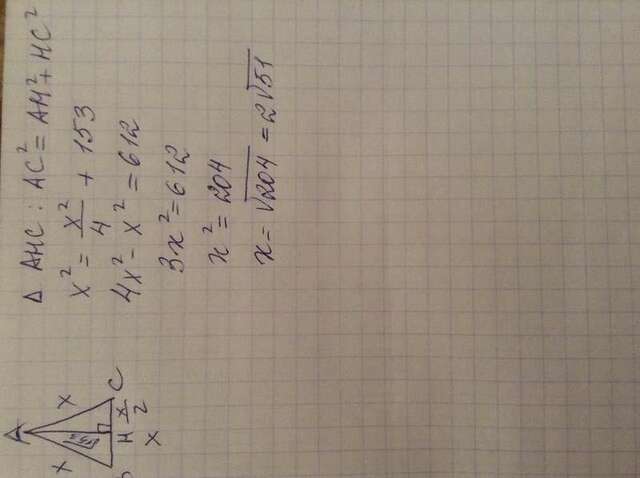 Δ AHC : AC² = AH² + HC²
x² = x²/4 + 153
4x² - x² = 612
3x² = 612
x² = 204
x = √204 = 2√51
A
x
x
H
C
x/2
x